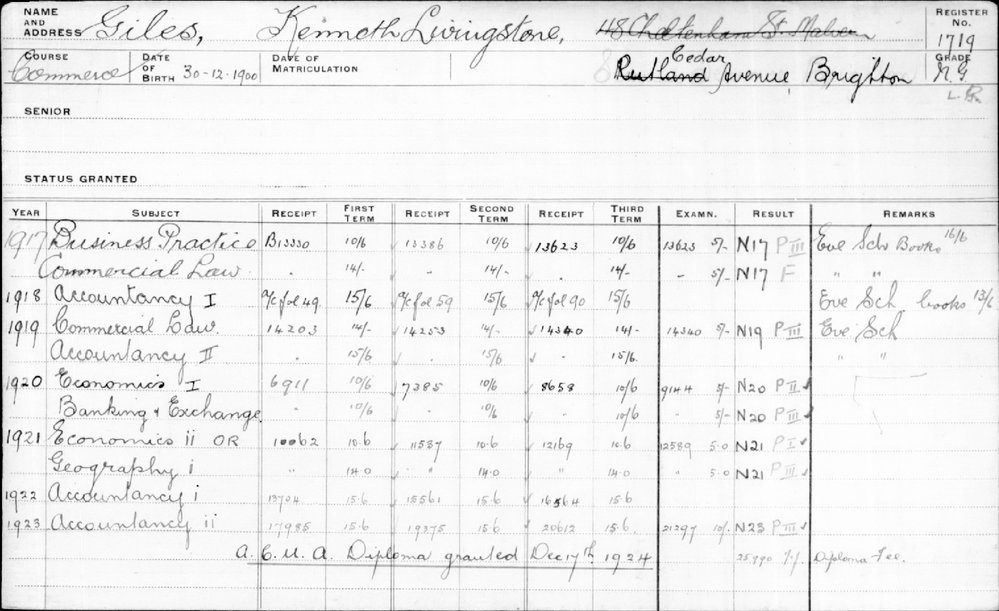 NAME AND ADDRESS Giles, Kenneth Livingstone, 48 Cheltenham St. Malvern REGISTER NO. 1719
COURSE Commerce DATE OF BIRTH 30-12-1900 DATE OF MATRICULATION Rutland Cedar Avenue, Brighton GRADE N.G
SENIOR
STATUS GRANTED
YEAR SUBJECT RECEIPT FIRST TERM RECEIPT SECOND TERM RECEIPT THIRD TERM EXAMN. RESULT REMARKS
1917 Business Practice B13330 10/6 13386 10/6 13623 10/6 13623 5/- N17 P III Eve Sch Books 16/6
Commercial Law " 14/- " 14/- " 14/- " 5/- N17 F " "
1918 Accountancy I 9/c fol 49. 15/6 9/c fol 59 15/6 9/c fol 90 15/6 Eve Sch books 13/6
1919 Commercial Law 14203 14/- 14253 14/- 14340 14/- 14340 5/- N19 P III Eve Sch
Accountancy II " 15/6 " 15/6 " 15/6. " "
1920 Economics I 6911 10/6 7385 10/6 8658 10/6 9144 5/- N20 P II
Banking & Exchange " 10/6 " 10/6 " 10/6 " 5/- N20 P III
1921 Economics ii OR 10062 10.6 11537 10.6 12169 10.6 12589 5.0 N21 P I
Geography i " 14.0 " 14.0 " 14.0 " 5.0 N21 P III
1922 Accountancy i 13704 15.6 15561 15.6 16564 15.6
1923 Accountancy ii 17985 15.6 19375 15.6 20612 15.6 21297 10/- N23 P III
A. C. U. A. Diploma granted Dec 17th 1924 25990 Diploma Fee.